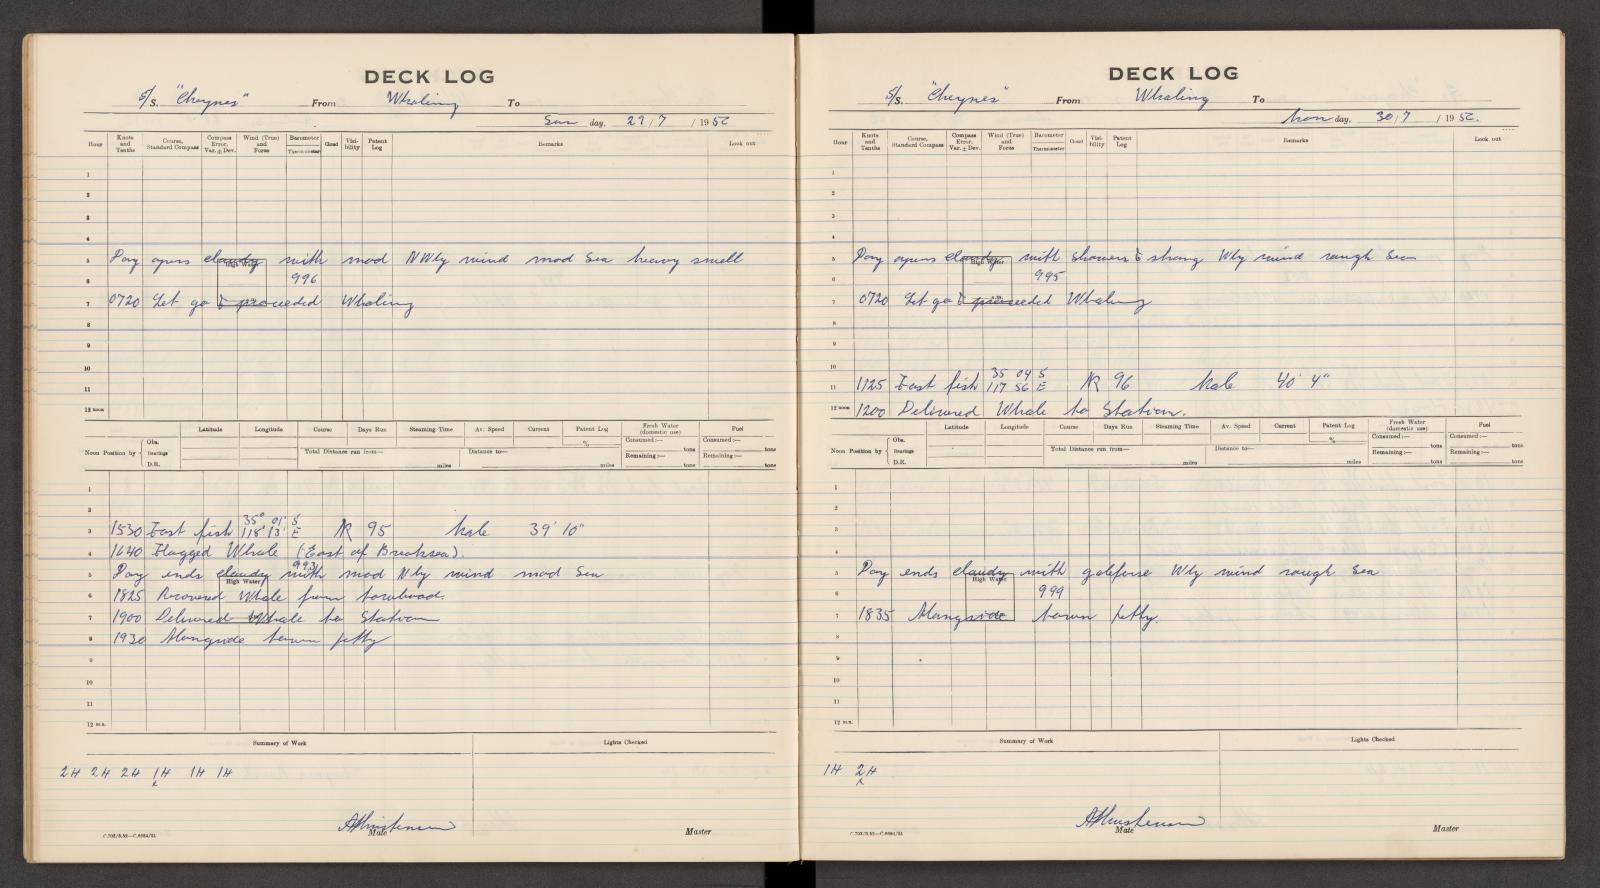 DECK LOG
S/S. "Cheynes" From Whaling To
Sun day, 29/7 / 1952
Hour Knots and Tenths Course, Standard Compass Compass Error, Var. ± Dev. Wind (True) and Force Barometer Thermometer Cloud Visibility Patent Log Remarks Look out
1
2
3
4
5 Day opens cloudy with mod NWly wind mod Sea heavy swell
High Water
6 996
7 0720 Let go & proceeded Whaling
8
9
10
11
12 noon
Latitude Longitude Course Days Run Steaming Time Av. Speed Current Patent Log % Fresh Water (domestic use) Fuel
Noon Position by Obs. Bearings D.R. Total Distance run from— miles Distance to— miles Consumed:— tons Remaining:— tons Consumed:— tons Remaining:— tons
1
2
35° 01' S
3 1530 Fast fish 118° 13' E № 95 Male 39' 10"
4 1640 Flagged Whale (East of Breaksea).
993
5 Day ends cloudy with mod Nly wind mod Sea
High Water
6 1825 Recovered Whale from towboat.
7 1900 Delivered Whale to Station
8 1930 Alongside town jetty
9
10
11
12 m.n.
Summary of Work Lights Checked
2H 2H 2H 1H 1H 1H
x
AHristensen
Mate Master
C.702/8.52—C.6664/51
DECK LOG
S/S. "Cheynes" From Whaling To
Mon day, 30/7 / 1952.
Hour Knots and Tenths Course, Standard Compass Compass Error, Var. ± Dev. Wind (True) and Force Barometer Thermometer Cloud Visibility Patent Log Remarks Look out
1
2
3
4
5 Day opens cloudy with showers & strong Wly wind rough Sea
High Water
6 995
7 0720 Let go & proceeded Whaling
8
9
10 35 04 S
11 1125 Fast fish 117 56 E № 96 Male 40' 4"
12 noon 1200 Delivered Whale to Station.
Latitude Longitude Course Days Run Steaming Time Av. Speed Current Patent Log % Fresh Water (domestic use) Fuel
Noon Position by Obs. Bearings D.R. Total Distance run from— miles Distance to— miles Consumed:— tons Remaining:— tons Consumed:— tons Remaining:— tons
1
2
3
4
5 Day ends cloudy with galeforse Wly wind rough Sea
High Water
6 999
7 1835 Alongside town jetty.
8
9
10
11
12 m.n.
Summary of Work Lights Checked
1H 2H
x
AHristensen
Mate Master